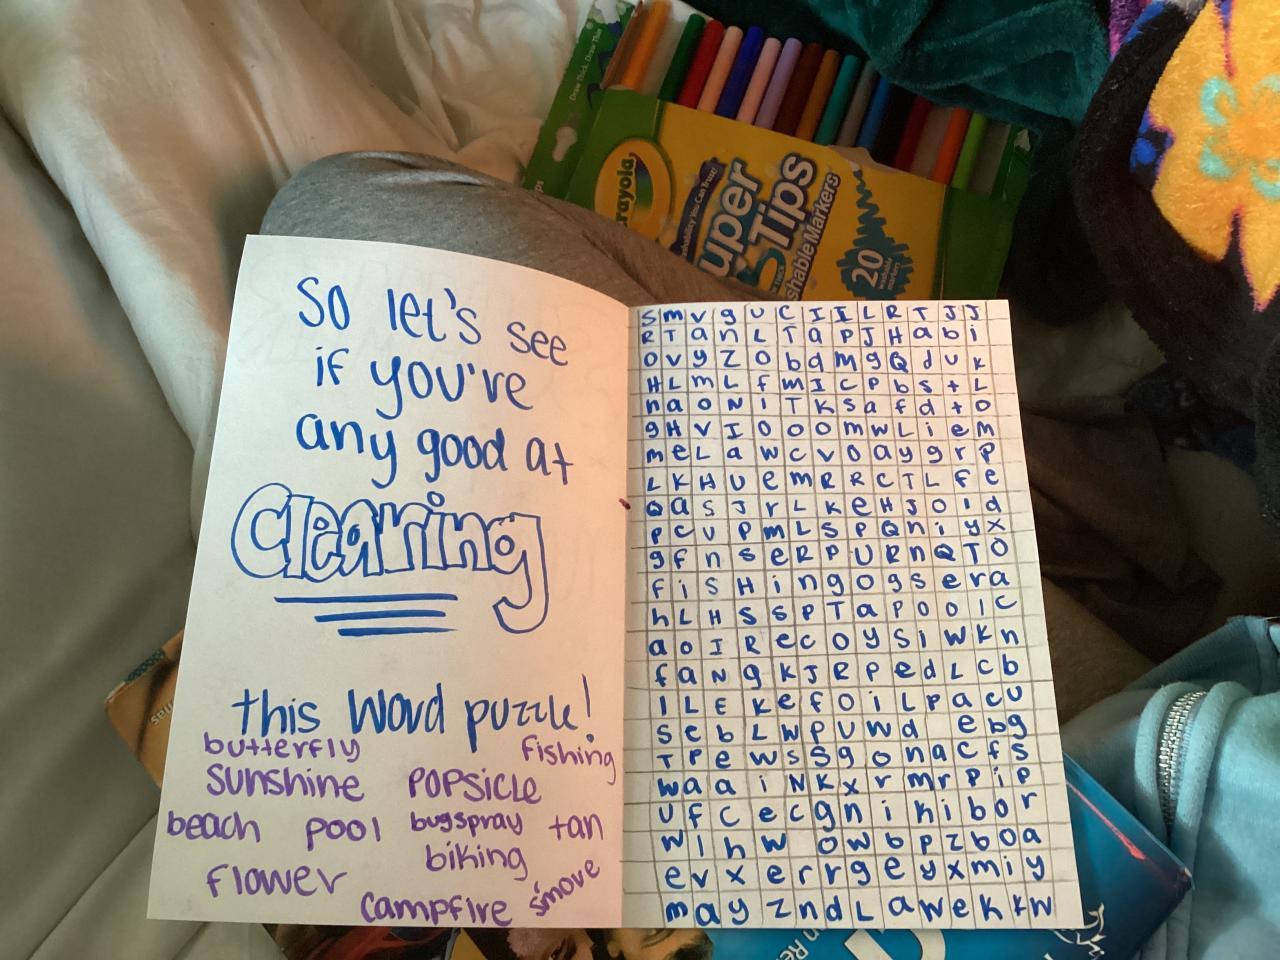 So let's see
if you've
any good at
Clearing
this word puzzle!
butterfly fishing
sunshine popsicle
beach pool bugspray tan
biking
flower
campfire s'more
S m v g u C I I L R T J J
R T a n L T a P J H a b i
O v y Z O b q m g Q d u k
H L m L f m I C P b s t L
n a O N I T K s a f d t o
g H V I O O O m w L i e m
m e L a w c v o a y g r p
L K H U e m R R C T L f e
o a s J r L K e H J o l d
p c u p m L S P Q n i y x
g f n s e R P U R n Q T O
f i S H i n g o g s e r a
h L H S S P T a P o o l c
a o I R e c o y s i w k n
f a N g K J R P e d L c b
I L E K e f o i L p a c u
s c b L w P U w d e b g
T P e w s S g o n a c f s
w a a i N K x r m r P i P
U f C e c g n i k i b o r
w l h w o w b p z b o a
e v x e r r g e y x m i y
m a y z n d L a w e k k w
Draw Thick, Draw Thin
Crayola
Super
Tips
Washable Markers
20